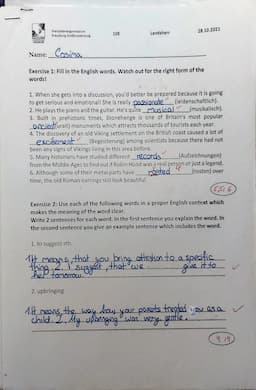 1SB Landsherr 28.10.2021
Name: Cosima
Exercise 1: Fill in the English words. Watch out for the right form of the
words!
1. When she gets into a discussion, you'd better be prepared because it is going
to get serious and emotional! She is really passionate (leidenschaftlich).
2. He plays the piano and the guitar. He's quite musical (musikalisch).
3. Built in prehistoric times, Stonehenge is one of Britain's most popular
ancient (uralt) monuments which attracts thousands of tourists each year.
4. The discovery of an old Viking settlement on the British coast caused a lot of
excitement (Begeisterung) among scientists because there had not
been any signs of Vikings living in this area before.
5. Many historians have studied different records (Aufzeichnungen)
from the Middle Ages to find out if Robin Hood was a real person or just a legend.
6. Although some of their metal parts have rosted (rosten) over
time, the old Roman earrings still look beautiful.
Exercise 2: Use each of the following words in a proper English context which
makes the meaning of the word clear.
Write 2 sentences for each word. In the first sentence you explain the word. In
the second sentence you give an example sentence which includes the word.
1. to suggest sth.
1 It means, that you bring attention to a specific
thing. 2. I suggest, that we give it to
her tomorrow.
2. upbringing
1 It means the way how your parents treated you as a
child. 2. My upbringing was very gentle.